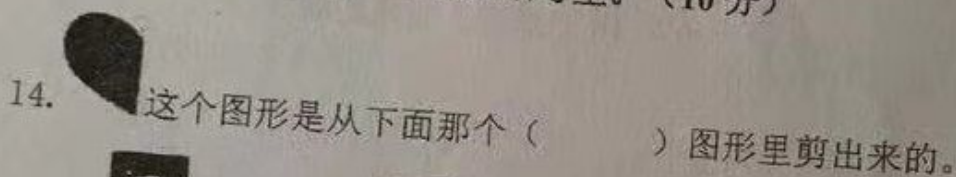 (10分)
14. 这个图形是从下面那个( )图形里剪出来的。